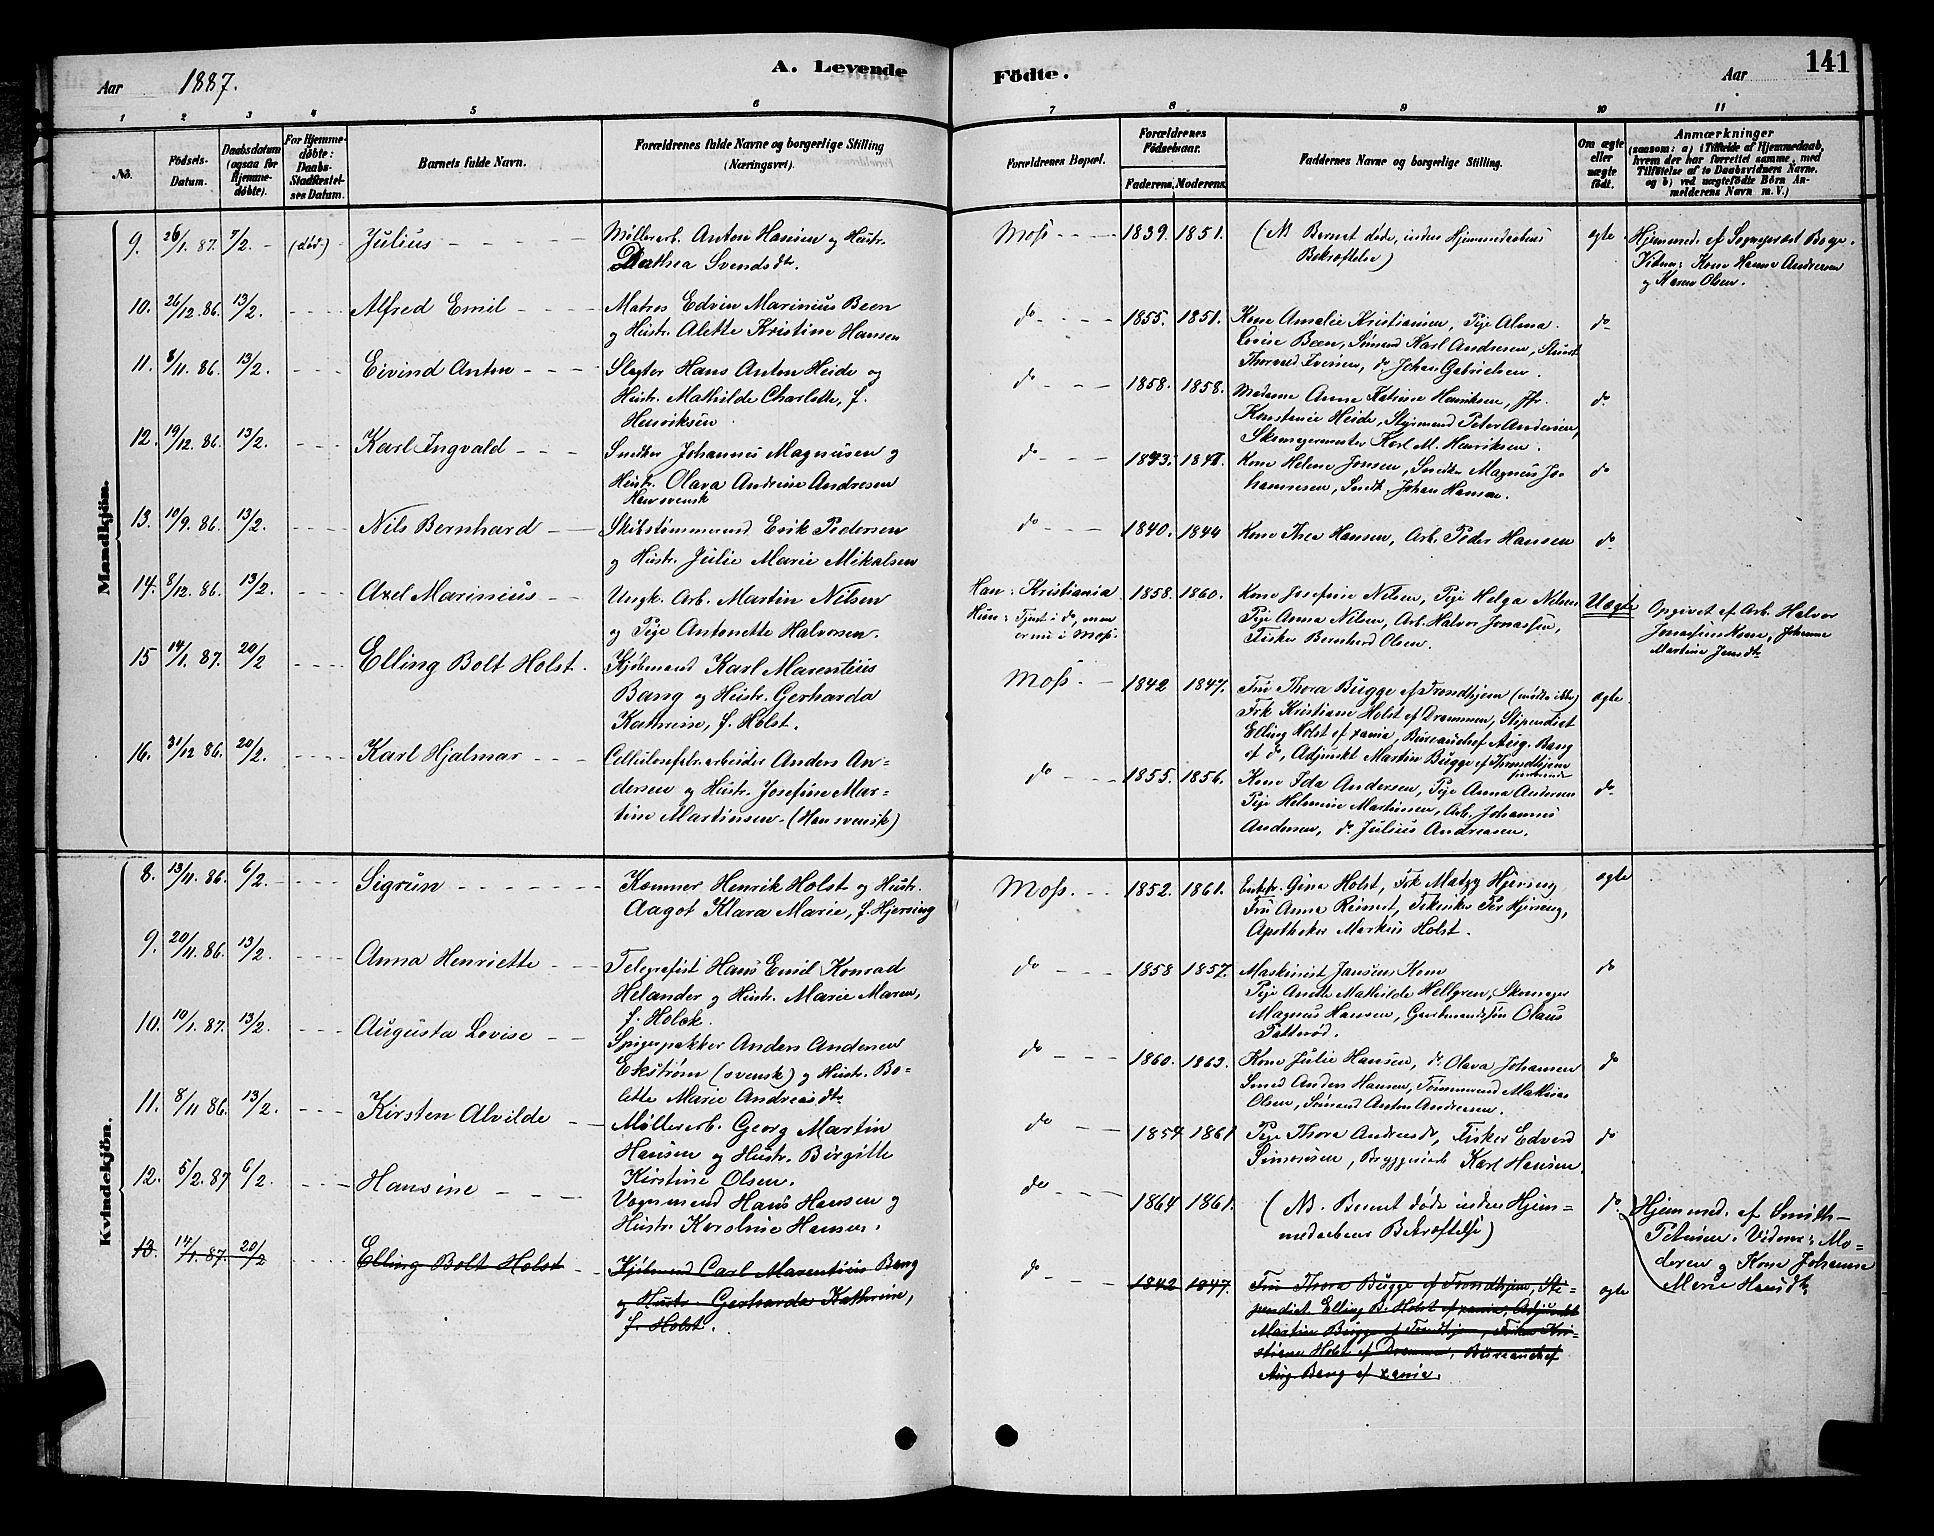 Aar 1887. A. Levende Födte. Aar 141
1 2 3 4 5 6 7 8 9 10 11
No. Födsels-Datum. Daabsdatum (ogsaa for Hjemmedöbte). For Hjemmedöbte: Daabs-Stadfæstelses Datum. Barnets fulde Navn. Forældrenes fulde Navne og borgerlige Stilling (Næringsvei). Forældrenes Bopæl. Forældrenes Födselsaar. Faderens. Moderens. Faddernes Navne og borgerlige Stilling. Om ægte eller uægte födt. Anmærkninger (saasom: a) i Tilfælde af Hjemmedaab, hvem der har forrettet samme, med Tilföielse af to Daabsvidners Navne. og b) ved uægtefödte Börn Anmelderens Navn m. V.)
Mandkjön.
9. 26/1. 87. 7/2. (död) Julius Møllerarb. Anton Hansen og Hustr. Moss 1839. 1851. (NB Barnet døde, inden Hjemmedaabens ægte Hjemmed. af Sogneprest Bøge.
Dorthea Svendsdt. Bekræftelse) Vidner: Kone Hanne Andersen
og Karen Olsen.
10. 26/12. 86. 13/2. Alfred Emil Matros Edvin Marinius Been do 1855. 1851. Kone Amalie Kristiansen, Pige Alma do
og Hustr. Alette Kristine Hansen Lovise Been, Sømand Karl Andresen,
Thorvald Iversen, do Johan Gabrielsen.
11. 8/11. 86. 13/2. Eivind Anton Slagter Hans Anton Heide og do 1858. 1858. Madame Anne Katrine Henriksen, Jfr. do
Hustr. Mathilde Charlotte, f. Konstanse Heide, Styrmand Peter Andersen,
Henriksen Skomagermester Karl M. Henriksen.
12. 19/12. 86. 13/2. Karl Ingvald Snedker Johannes Magnusen og do 1843. Kone Helene Jonsen, Snedker Magnus Jo-
Hustr. Olava Andrine Andresen hannesen, Snedk. Johan Hansen. do
Han svensk
13. 10/9. 86. 13/2. Nils Bernhard Skibstømmermand Erik Pedersen do 1840. 1844 Kone Thea Hansen, Arb. Peder Hansen do
og Hustr. Julie Marie Mikalsen
14. 8/12. 86. 13/2. Axel Marinius Ungk. Arb. Martin Nilsen Han: Kristiania 1858. 1860. Kone Josefine Nilsen, Pige Helga Nilsen Uægte Opgivet af Arb. Halvor
og Pige Antonette Halvorsen. Hun: Tjent i do, men Pige Anna Nilsen, Arb. Halvor Jonassen, Jonassens Kone, Johanne
er nu i Moss. Fisker Bernhard Olsen. Martine Jensdt.
15 14/1. 87. 20/2 Elling Bolt Holst. Kjøbmand Karl Marentius Moss. 1842 1847. Fru Thora Bugge af Trondhjem (mødte ikke) ægte
Bang og Hustr. Gerharda Frk Kristiane Holst af Drammen, Stipendiat
Kathrine, f. Holst. Elling Holst af xania, Bureauchef Aug. Bang
af do, Adjunkt Martin Bugge af Throndhjem
fraværende
16. 31/12 86. 20/2. Karl Hjalmar Cellulosefabr.arbeider Anders An- do 1855. 1856. Kone Ida Andersen, Pige Anna Andersen do
dersen og Hustr. Josefine Mar- Pige Helmine Martinsen, Arb. Johannes
tine Martinsen. (Han svensk) Andersen, do Julius Andreasen.
Kvindekjön.
8. 13/11. 86. 6/2. Sigrun Kemner Henrik Holst og Hustr. Moss. 1852. 1861. Enkefr. Gina Holst, Frk Matzy Hjersing ægte
Aagot Klara Marie, f. Hjersing Fru Anna Reimet, Tekniker Per Hjersing,
Apotheker Markus Holst.
9. 20/11. 86. 13/2. Anna Henriette Telegrafist Hans Emil Konrad do 1858 1857. Maskinist Jansens Kone do
Helander og Hustr. Marie Maren, Pige Anette Mathilde Hellgren, Skomager
f. Holck. Magnus Hansen, Gaardmandssøn Olaus
Patterød.
10. 10/1. 87. 13/2. Augusta Lovise Spigerpakker Anders Andersen do 1860. 1863. Kone Julie Hansen, do Olava Johansen do
Ekström (svensk) og Hustr. Bo- Smed Anders Hansen, Tømmermand Mathias
lette Marie Andreasdt. Olsen, Sømand Anton Andresen.
11. 8/11 86. 13/2. Kirsten Alvilde Møllerarb. Georg Martin do 1854 1861 Pige Thora Andreasdt, Fisker Edvard do
Hansen og Hustr. Birgitte Simonsen, Bryggeriarb Karl Hansen.
Kirstine Olsen.
12. 5/2. 87 6/2. Hansine Vognmand Hans Hansen og do 1864 1861. (NB. Barnet døde inden Hjem- do. Hjemmed. af Smith-
Hustr. Karoline Hansen. medaabens Bekræftelse) Petersen. Vidner: Mo-
deren og Kone Johanne
Marie Hansdt.
13. 14/1. 87. 20/2 Elling Bolt Holst Kjøbmand Carl Marentius Bang do 1842 1847. Fru Thora Bugge af Trondhjem, Sti- ægte
og Hustr. Gerharda Kathrine, pendiat Elling B. Holst af xania, Adjunkt
f. Holst. Martin Bugge af Trondhjem, Frøken Kri-
stiane Holst af Drammen, Bureauchef
Aug. Bang af xania.